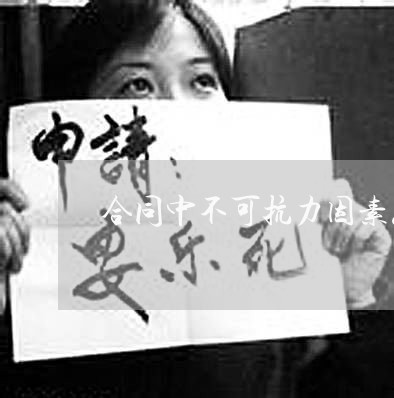 申請：
合同中不可抗力因素
乐死